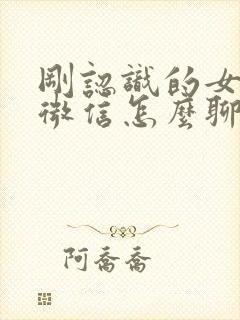 剛認識的女
微信怎麼聊
阿喬喬